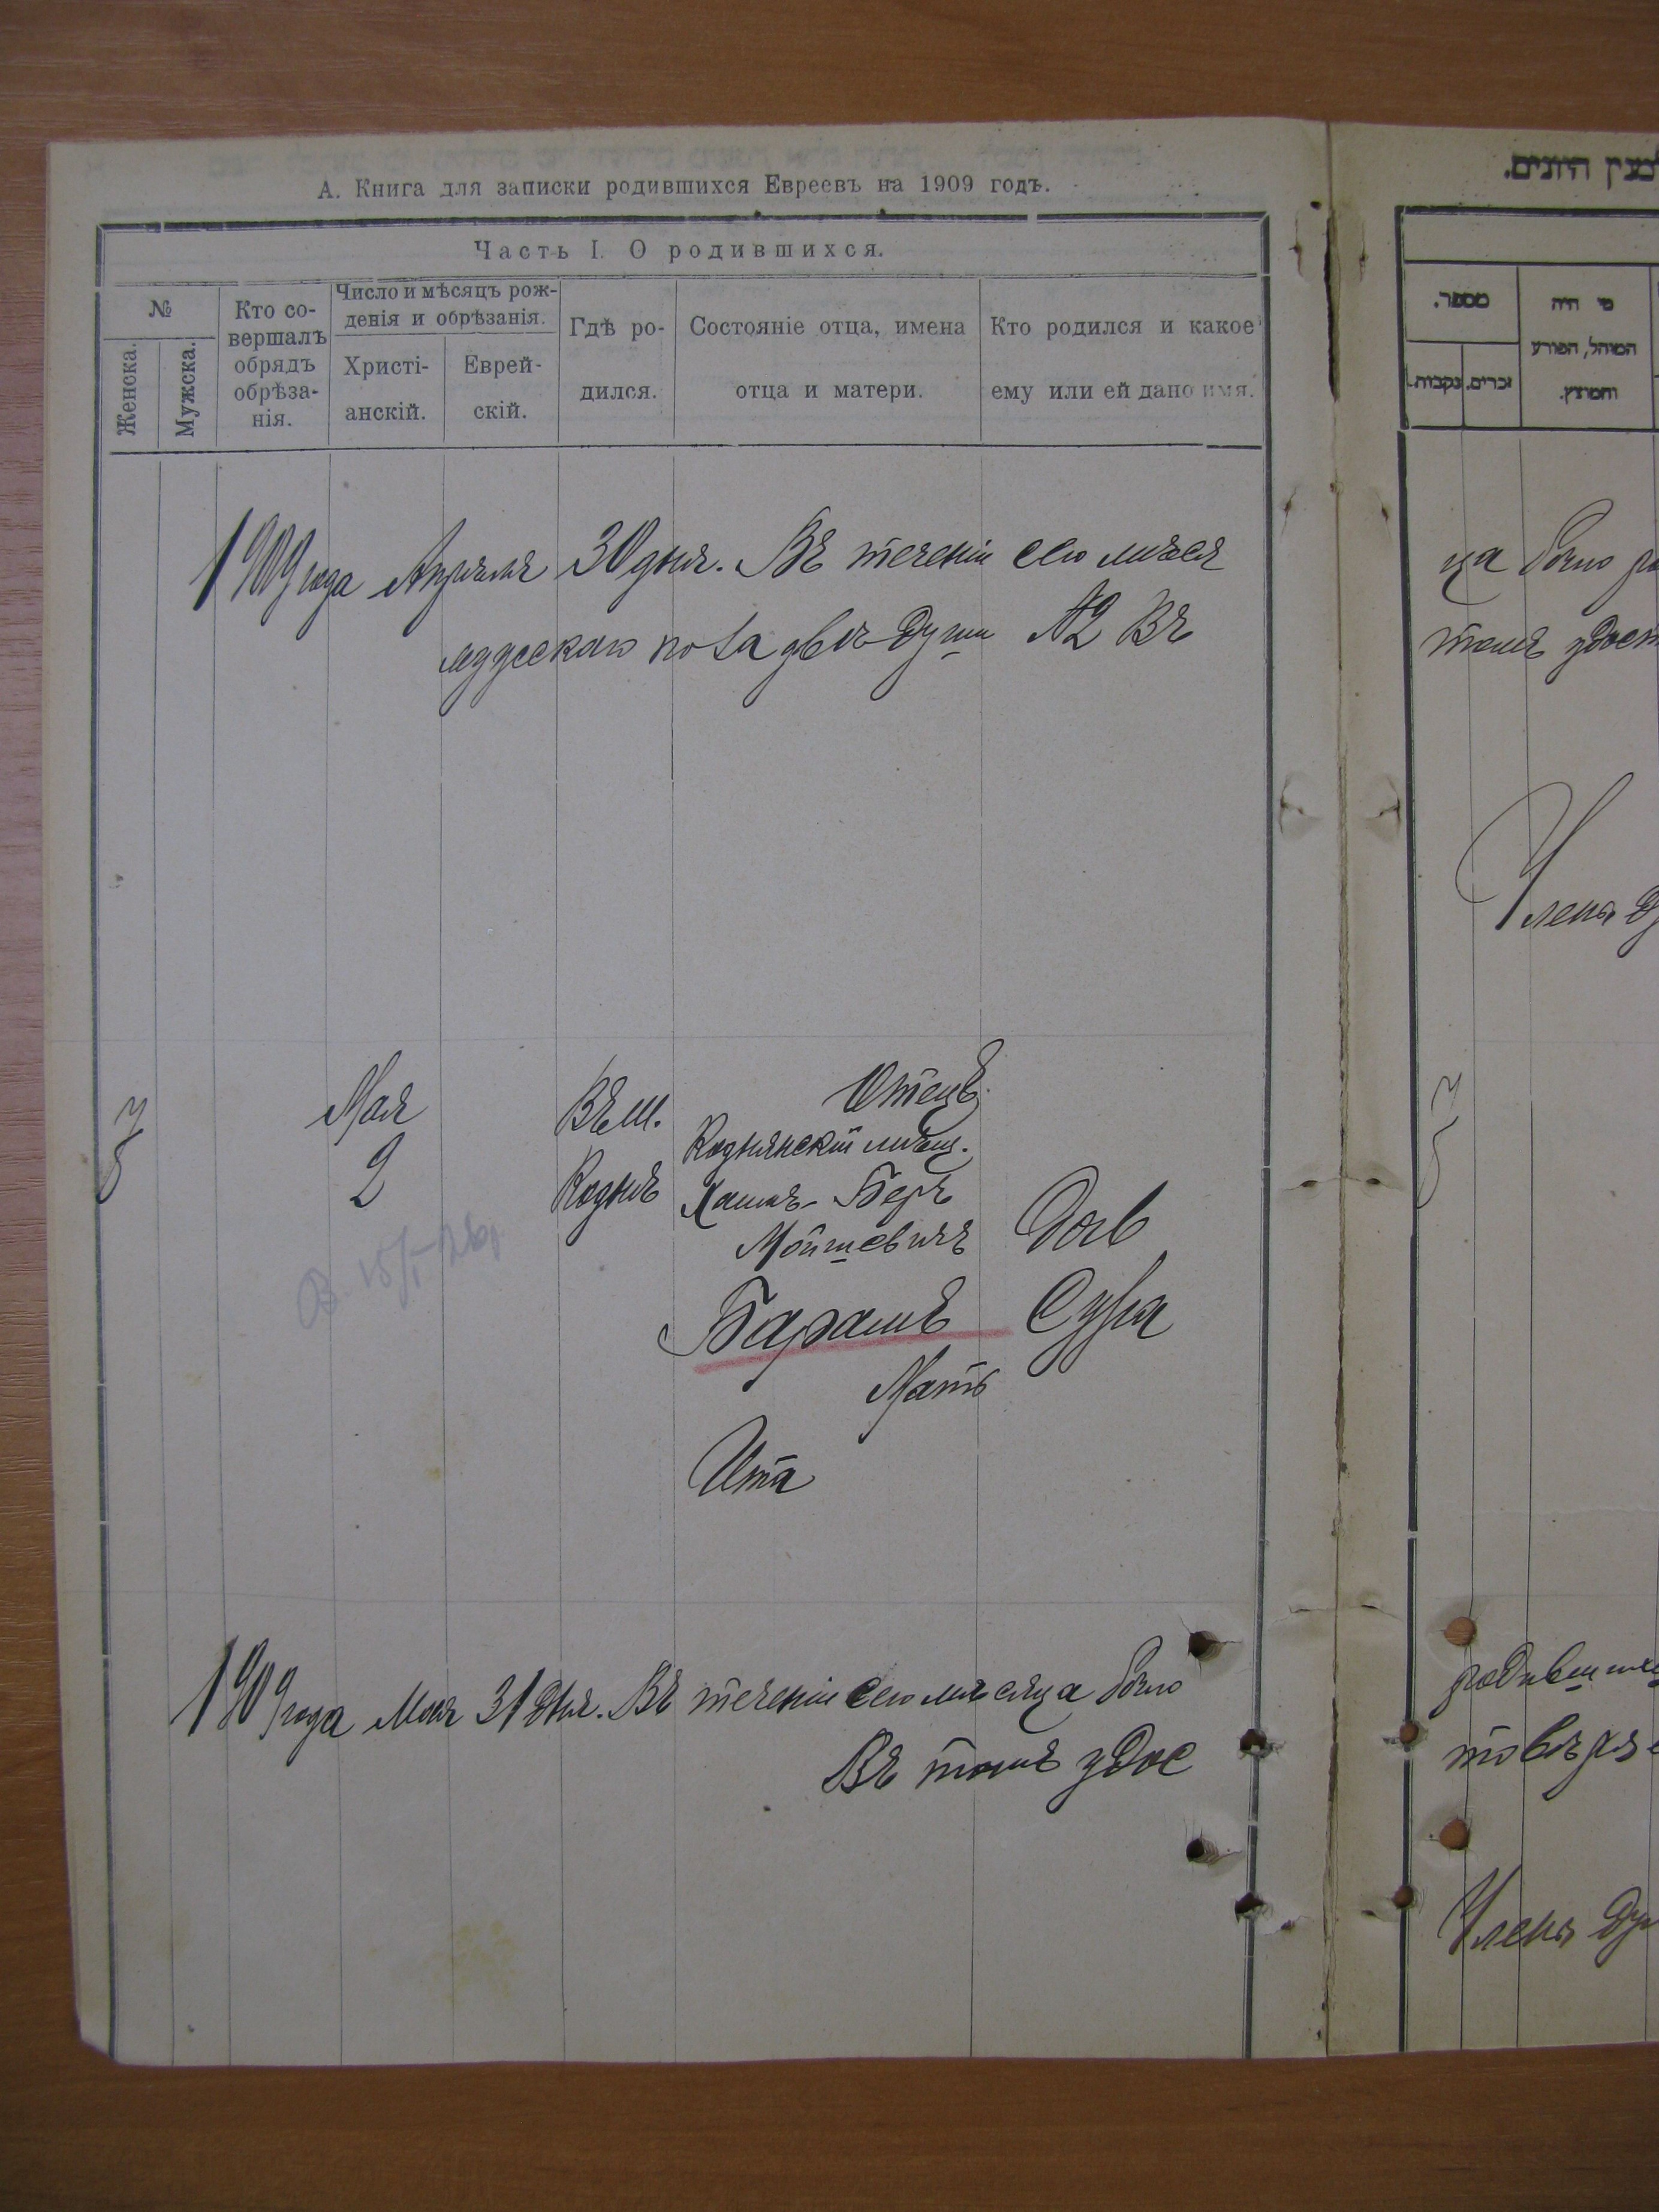 А. Книга для записки родившихся Евреевъ на 1909 годъ.
Часть I. О родившихся.
№
Женска.
Мужска.
Кто со-
вершалъ
обрядъ
обрѣза-
нія.
Число и мѣсяцъ рож-
денія и обрѣзанія.
Христі-
анскій.
Еврей-
скій.
Гдѣ ро-
дился.
Состояніе отца, имена
отца и матери.
Кто родился и какое
ему или ей дано имя.
1909 года Апрѣля 30 дня. Въ теченіи сего мѣся
мужескаго пола двѣ души №2 Въ
3
Мая
2
Въ м.
Коднѣ
Отецъ
Коднянскій мѣщ.
Хаимъ-Беръ
Мойшевичъ
Барашъ
Мать
Ита
Дочь
Сура
1909 года Мая 31 дня. Въ теченіи сего мѣсяца было
Въ томъ удос
מספר.
זכרים.
נקבות.
מי היה
המוהל, הפורע
והמוצץ.
ца было ро
томъ удост
Членъ Ду
3
родившихс
товѣряе
Членъ Ду